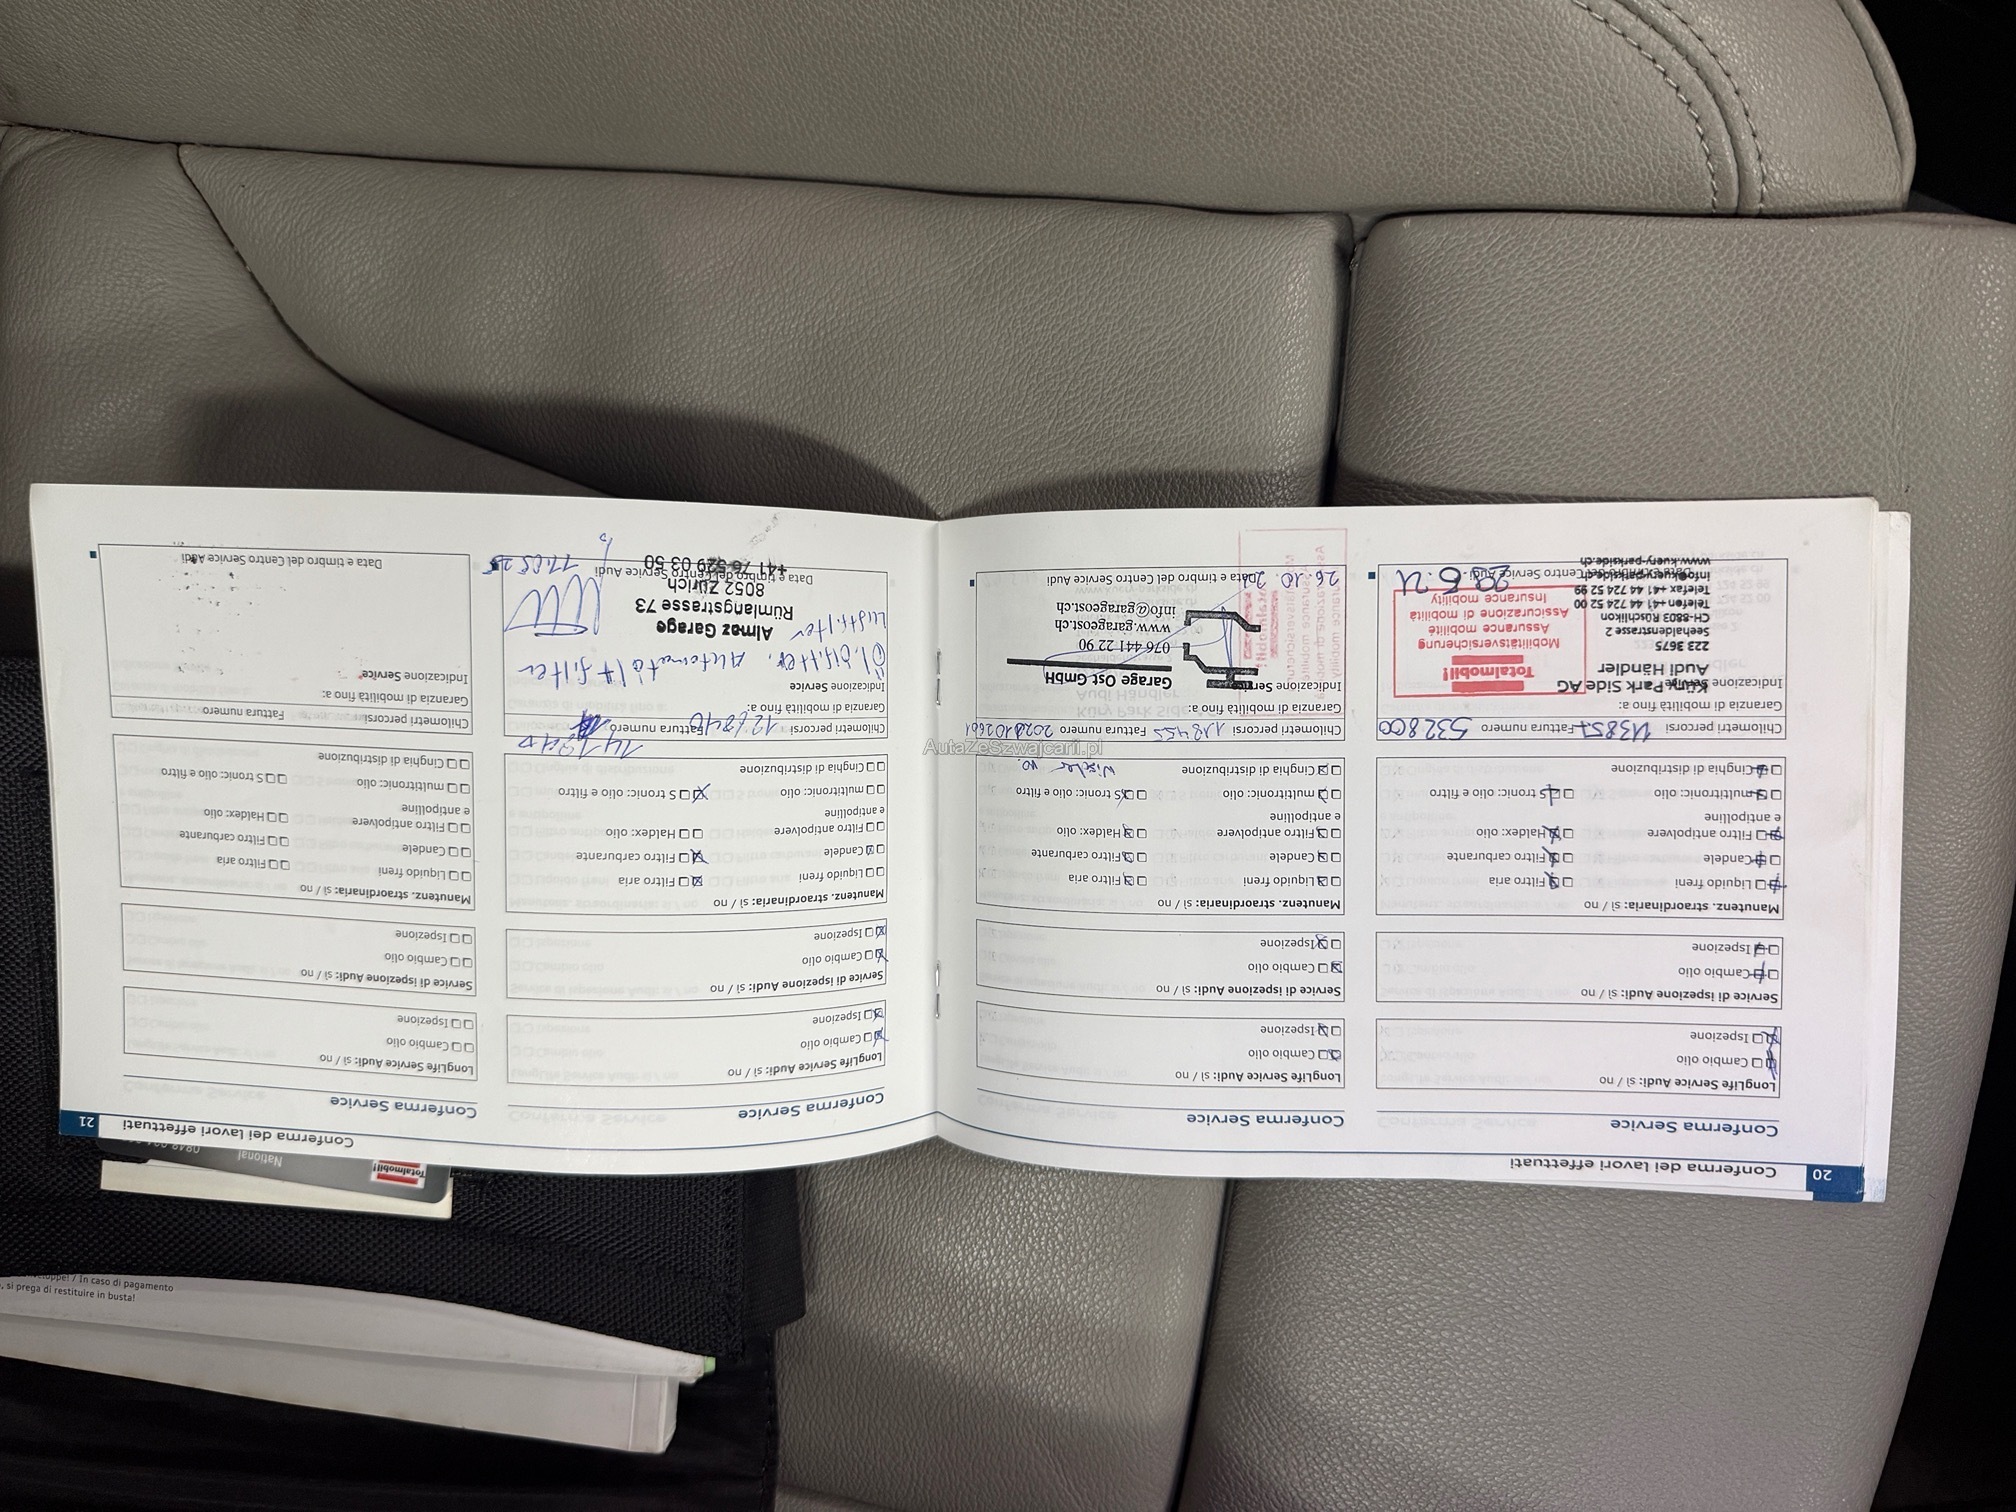 20
Conferma dei lavori effettuati
Conferma Service
LongLife Service Audi: sì / no
Cambio olio
Ispezione
Service di ispezione Audi: sì / no
Cambio olio
Ispezione
Manutenz. straordinaria: sì / no
Liquido freni
Filtro aria
Candele
Filtro carburante
Filtro antipolvere
e antipolline
Haldex: olio
multitronic: olio
S tronic: olio e filtro
Cinghia di distribuzione
Chilometri percorsi
Fattura numero 532800
Garanzia di mobilità fino a:
Indicazione Service
Küry Park Side AG
Audi Händler
223 3675
Seehaldenstrasse 2
CH-8803 Rüschlikon
Telefon +41 44 724 52 00
Telefax +41 44 724 52 99
info@kuery-parkside.ch
www.kuery-parkside.ch
Totalmobil!
Mobilitätsversicherung
Assurance mobilité
Assicurazione di mobilità
Insurance mobility
Conferma Service
LongLife Service Audi: sì / no
Cambio olio
Ispezione
Service di ispezione Audi: sì / no
Cambio olio
Ispezione
Manutenz. straordinaria: sì / no
Liquido freni
Filtro aria
Candele
Filtro carburante
Filtro antipolvere
e antipolline
Haldex: olio
multitronic: olio
S tronic: olio e filtro
Cinghia di distribuzione
Wischer vo.
Chilometri percorsi 118455 Fattura numero
Garanzia di mobilità fino a:
Indicazione Service
Garage Ost GmbH
076 441 22 90
www.garageost.ch
info@garageost.ch
Data e timbro del Centro Service Audi
26.10.
Conferma dei lavori effettuati
21
Conferma Service
LongLife Service Audi: sì / no
Cambio olio
Ispezione
Service di ispezione Audi: sì / no
Cambio olio
Ispezione
Manutenz. straordinaria: sì / no
Liquido freni
Filtro aria
Candele
Filtro carburante
Filtro antipolvere
e antipolline
Haldex: olio
multitronic: olio
S tronic: olio e filtro
Cinghia di distribuzione
Chilometri percorsi
Fattura numero
Garanzia di mobilità fino a:
Indicazione Service
Luftfilter
Almaz Garage
Rümlangstrasse 73
8052 Zürich
+41 76 529 03 50
Data e timbro del Centro Service Audi
Conferma Service
LongLife Service Audi: sì / no
Cambio olio
Ispezione
Service di ispezione Audi: sì / no
Cambio olio
Ispezione
Manutenz. straordinaria: sì / no
Liquido freni
Filtro aria
Candele
Filtro carburante
Filtro antipolvere
e antipolline
Haldex: olio
multitronic: olio
S tronic: olio e filtro
Cinghia di distribuzione
Chilometri percorsi
Fattura numero
Garanzia di mobilità fino a:
Indicazione Service
Data e timbro del Centro Service Audi
AutaZeSzwajcarii.pl
Totalmobil!
National
/ In caso di pagamento
, si prega di restituire in busta!